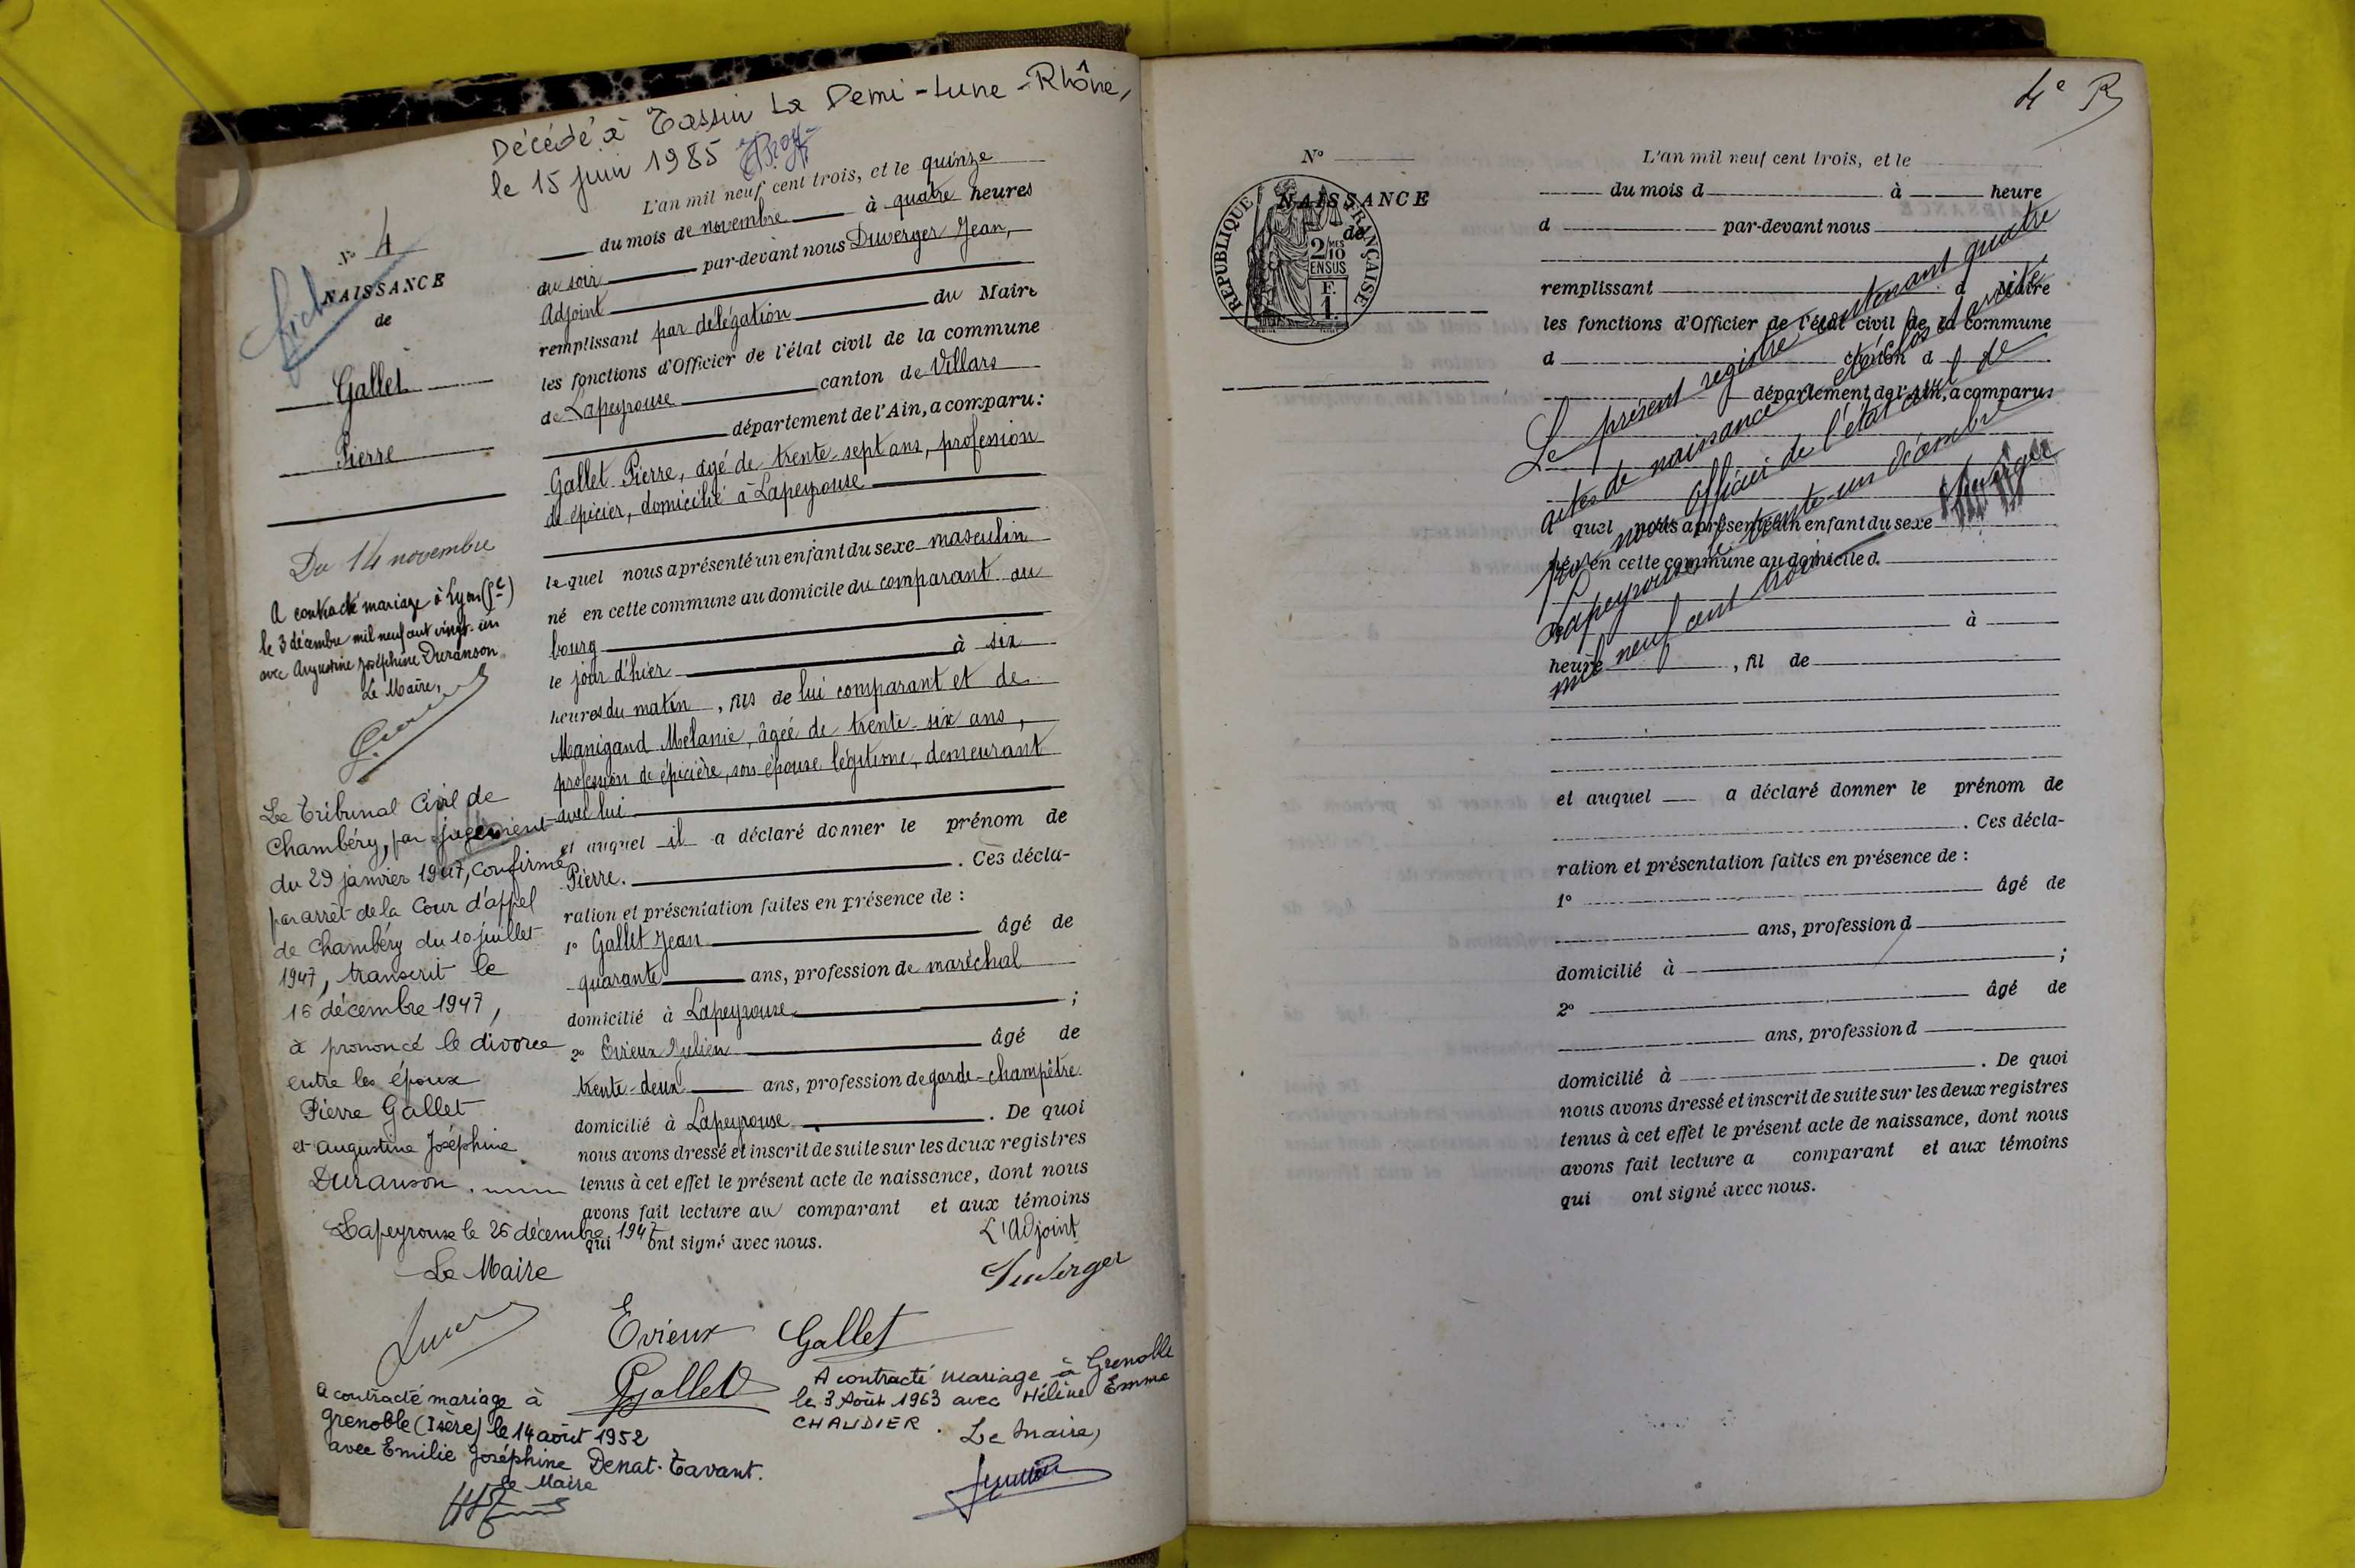 Décédé à Tassin La Demi-Lune-Rhône,
le 15 juin 1985
N° 4
NAISSANCE
de
Gallet
Pierre
Du 14 novembre
A contracté mariage à Lyon
le 3 décembre mil neuf cent vingt-un
avec Augustine Joséphine Duranson
Le Maire,
Le Tribunal Civil de
Chambéry, par jugement
du 29 janvier 1947, confirmé
par arrêt de la Cour d'appel
de Chambéry du 10 juillet
1947, transcrit le
16 décembre 1947,
a prononcé le divorce
entre les époux
Pierre Gallet
et Augustine Joséphine
Duranson.
Lapeyrouse le 26 décembre 1947
Le Maire
A contracté mariage à
Grenoble (Isère) le 14 août 1952
avec Emilie Joséphine Denat-Tavant.
Le Maire
L'an mil neuf cent trois, et le quinze
du mois de novembre à quatre heures
du soir par-devant nous Duverger Jean,
Adjoint
remplissant par délégation du Maire
les fonctions d'Officier de l'état civil de la commune
de Lapeyrouse canton de Villars
département de l'Ain, a comparu :
Gallet Pierre, âgé de trente-sept ans, profession
de épicier, domicilié à Lapeyrouse
lequel nous a présenté un enfant du sexe masculin
né en cette commune au domicile du comparant au
bourg
le jour d'hier à six
heures du matin, fils de lui comparant et de
Manigand Mélanie, âgée de trente-six ans,
profession de épicière, son épouse légitime, demeurant
avec lui
et auquel il a déclaré donner le prénom de
Pierre. Ces décla-
ration et présentation faites en présence de :
1° Gallet Jean âgé de
quarante ans, profession de maréchal
domicilié à Lapeyrouse ;
2° Evieux Julien âgé de
trente-deux ans, profession de garde-champêtre
domicilié à Lapeyrouse. De quoi
nous avons dressé et inscrit de suite sur les deux registres
tenus à cet effet le présent acte de naissance, dont nous
avons fait lecture au comparant et aux témoins
qui ont signé avec nous.
L'Adjoint
Duverger
Evieux Gallet
Gallet
A contracté mariage à Grenoble
le 3 Août 1963 avec Hélène Emma
CHAUDIER.
Le Maire,
4e
N°
NAISSANCE
de
RÉPUBLIQUE FRANÇAISE
2/10
MES
EN SUS
F.
1.
L'an mil neuf cent trois, et le
du mois d à heure
d par-devant nous
remplissant d Maire
les fonctions d'Officier de l'état civil de la commune
d canton d
département de l'Ain, a comparu :
Le présent registre contenant quatre
actes de naissance a été clos et arrêté
par nous Officier de l'état civil de
Lapeyrouse le trente-un décembre
mil neuf cent trois
Duverger
quel nous a présenté un enfant du sexe
né en cette commune au domicile d
à
heure , fil de
et auquel a déclaré donner le prénom de
. Ces décla-
ration et présentation faites en présence de :
1° âgé de
ans, profession d
domicilié à ;
2° âgé de
ans, profession d
domicilié à . De quoi
nous avons dressé et inscrit de suite sur les deux registres
tenus à cet effet le présent acte de naissance, dont nous
avons fait lecture a comparant et aux témoins
qui ont signé avec nous.